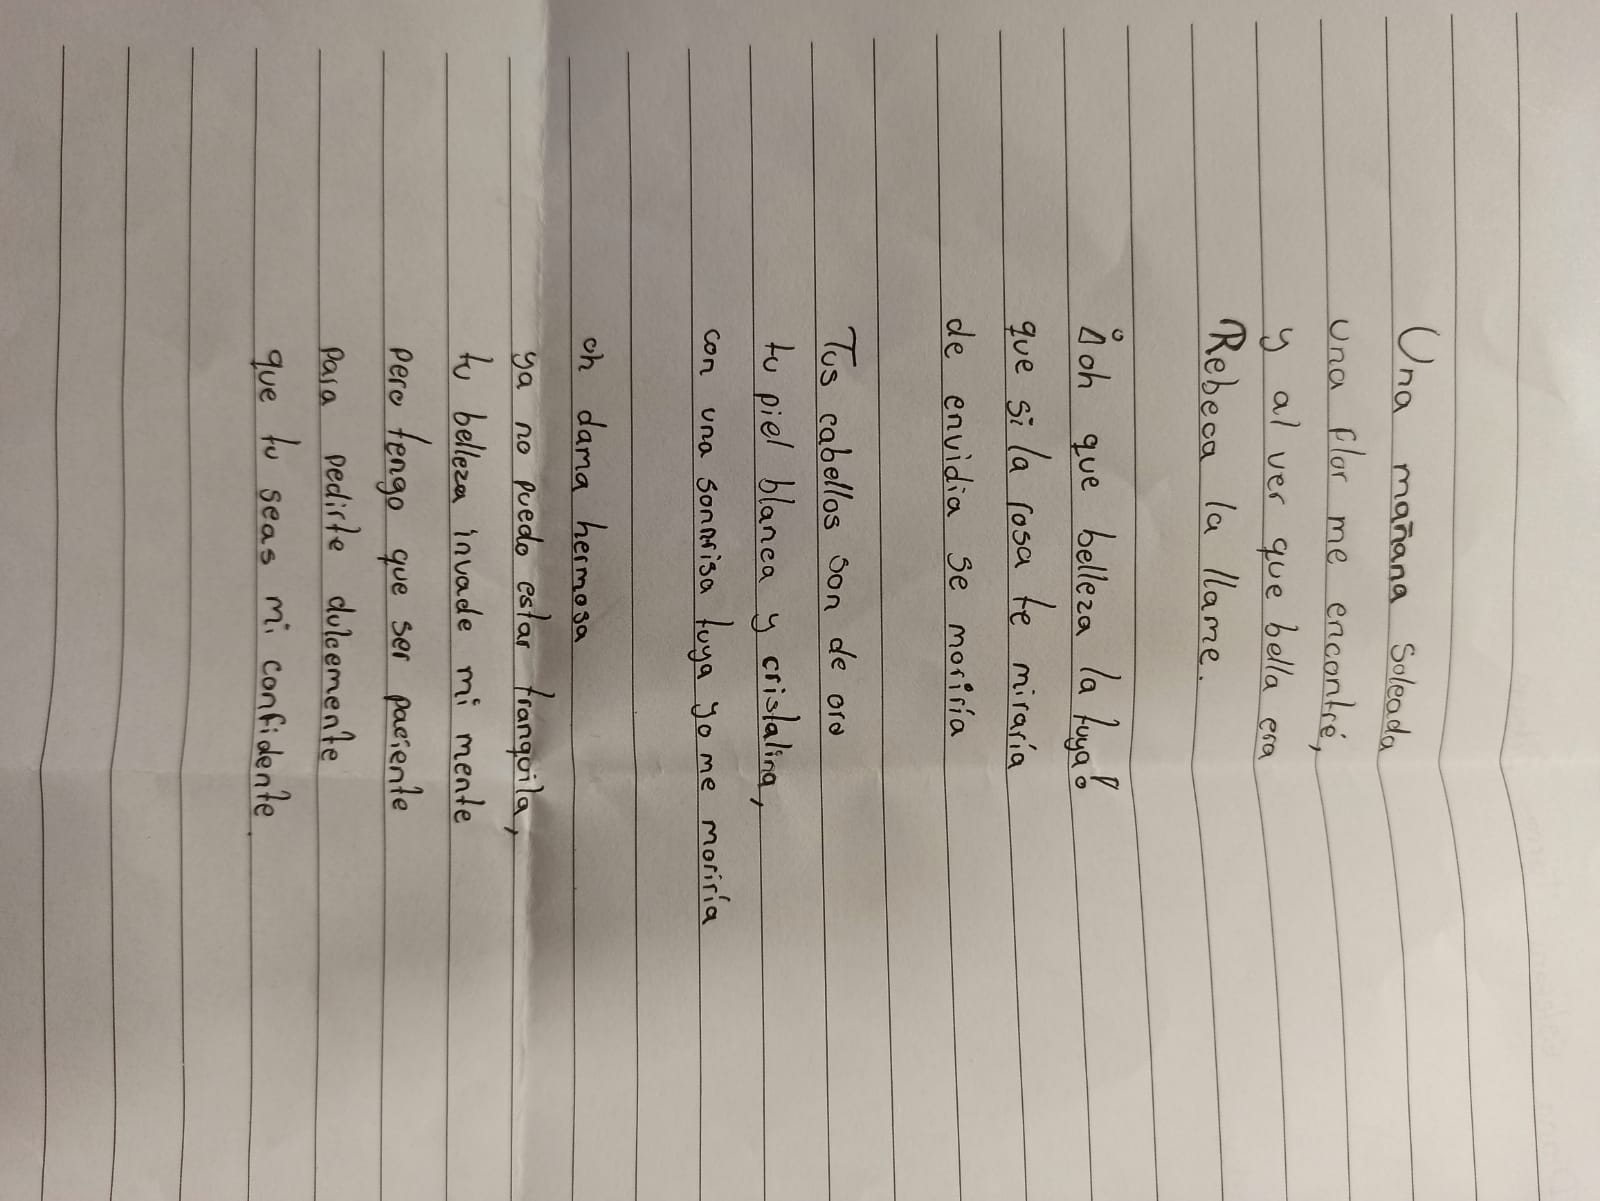 Una mañana soleada
una flor me encontré,
y al ver que bella era
Rebeca la llame.
¡oh que belleza la tuya!
que si la rosa te miraría
de envidia se moriría
Tus cabellos son de oro
tu piel blanca y cristalina,
con una sonrisa tuya yo me moriría
oh dama hermosa
ya no puedo estar tranquila,
tu belleza invade mi mente
pero tengo que ser paciente
para pedirte dulcemente
que tu seas mi confidente.